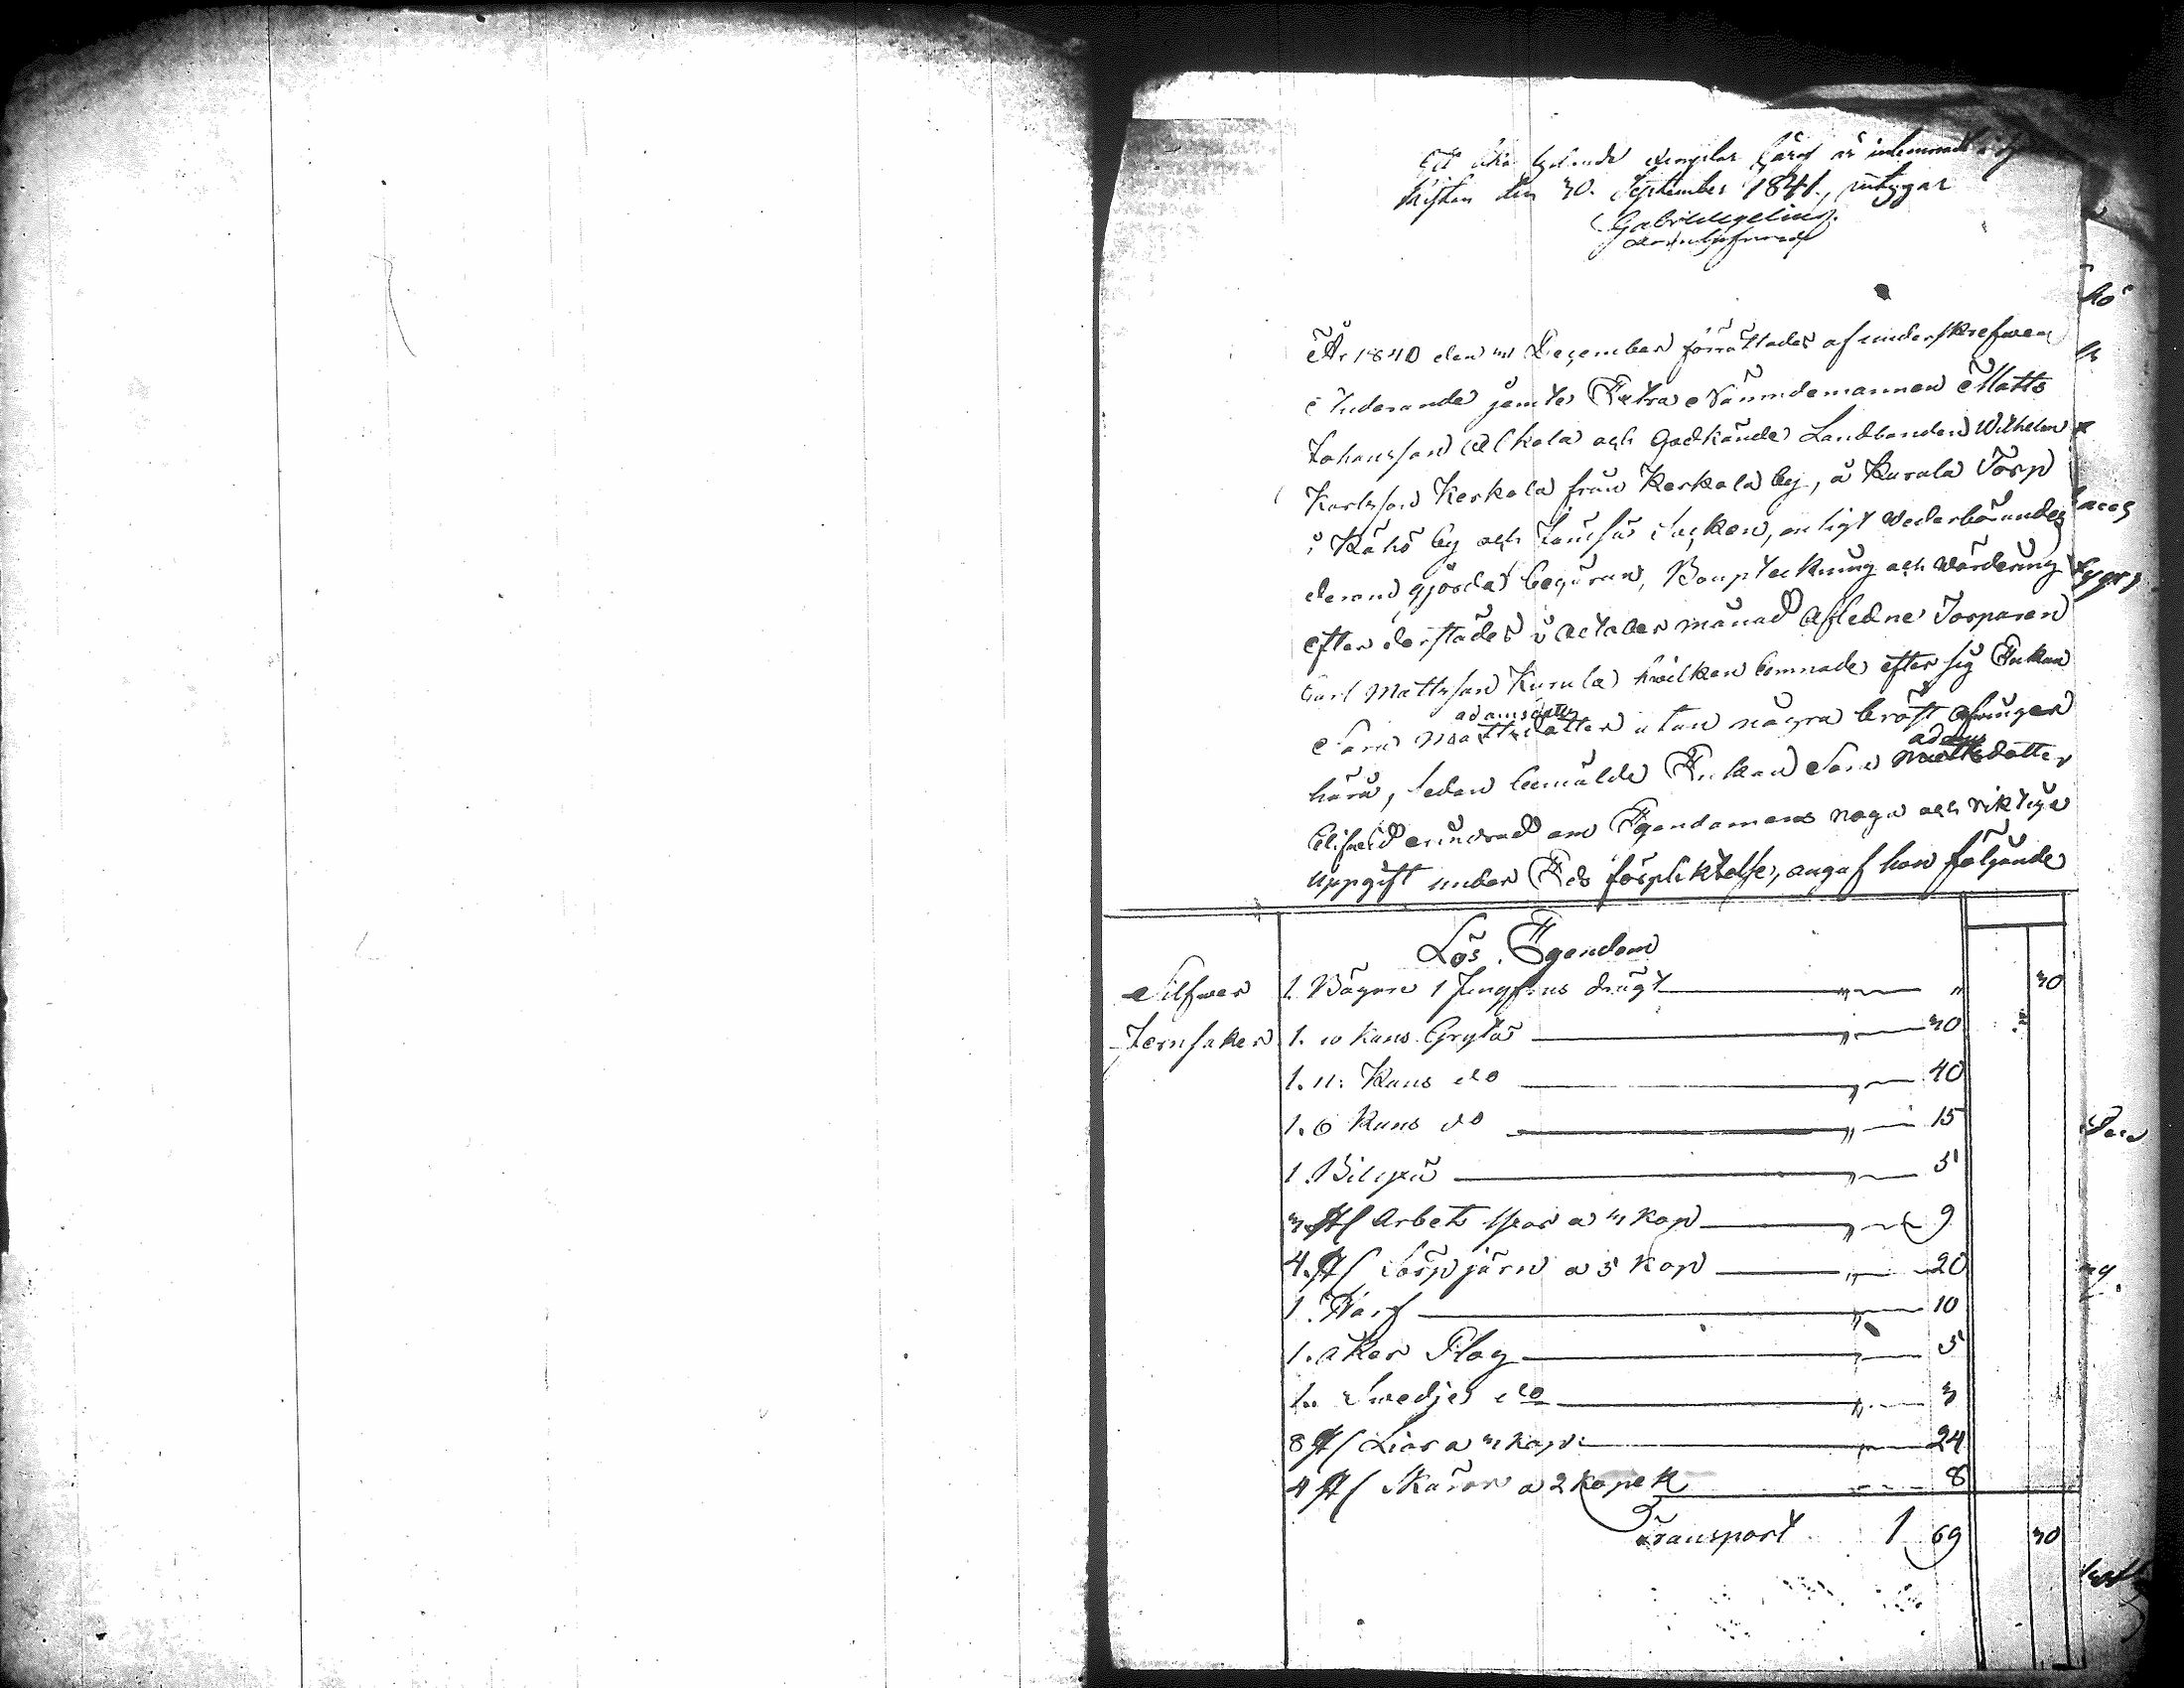 Ett lika lydande exemplar häraf är inlemnadt
den 30. September 1841, intygar
År 1840 den 3 December förrättades af underskrefwen
Auderande jemte Extra Nämndemannen Matts
Johansson Alkola och Godkände Landbonden Wilhelm
Karlsson Kerkola från Kerkola by, å Kurala Torp
i Kähö by och Socken, enligt Wederbörandes
derom gjorda begäran, Boupteckning och wärdering
efter derstädes i October månad Afledne Torparen
Carl Mattsson Kurala hwilken lemnade efter sig Enkan
adamsdotter
Sara Mattsdotter utan några bröst Arfwingar
adams
håra, sedan bemälde Enkan Sara Mattsdotter
blifwid erindrad om Egendomens noga och riktiga
uppgift under Eds förpliktelse, angaf hon följande
Lös Egendom
Silfwer 1 Bägare 1 Jungfrus drugt " " 30
Jernsaker 1. 10 Kans Gryta " 30
1. 11. Kans do " 40
1. 6 Kans do " 15
1. Bilyxa " 5
3. st Arbets yxor a 3 kop " 9
4. st Torpjärn a 5 Kop " 20
1. Harf " 10
1. åker Plog " 5
1. Swedje do " 3
8 st Liar a 3 kop " 24
4 st Skäror a 2 kopek " 8
Transport 1 69 30